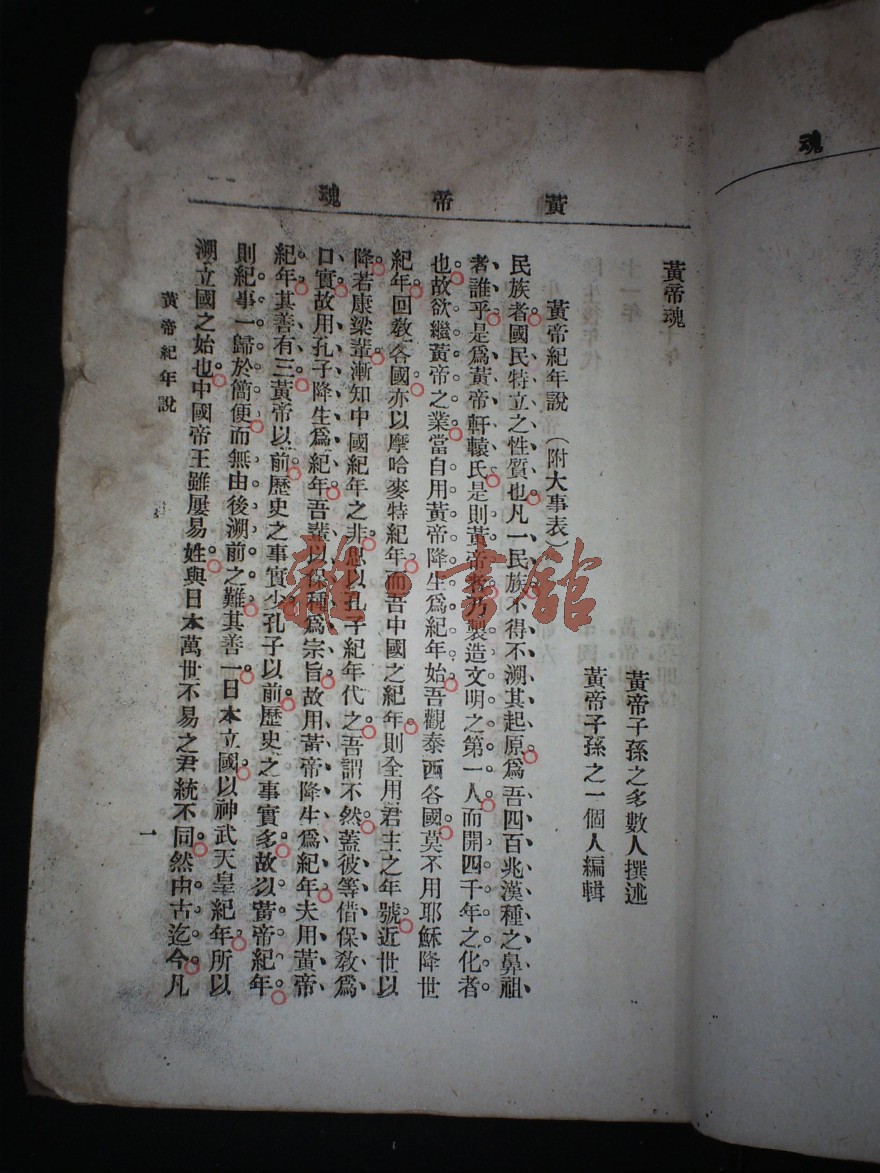 魂
黃帝魂
黃帝魂
黃帝子孫之多數人撰述
黃帝子孫之一個人編輯
黃帝紀年說(附大事表)
民族者國民特立之性質也凡一民族不得不溯其起原爲吾四百兆漢種之鼻祖
者誰乎是爲黃帝軒轅氏是則黃帝者乃製造文明之第一人而開四千年之化者
也故欲繼黃帝之業當自用黃帝降生爲紀年始吾觀泰西各國莫不用耶穌降世
紀年回敎各國亦以摩哈麥特紀年而吾中國之紀年則全用君主之年號近世以
降若康梁輩漸知中國紀年之非思以孔子紀年代之吾謂不然蓋彼等借保敎爲
口實故用孔子降生爲紀年吾輩以保種爲宗旨故用黃帝降生爲紀年夫用黃帝
紀年其善有三黃帝以前歷史之事實少孔子以前歷史之事實多故以黃帝紀年
則紀事一歸於簡便而無由後溯前之難其善一日本立國以神武天皇紀年所以
溯立國之始也中國帝王雖屢易姓與日本萬世不易之君統不同然由古迄今凡
黃帝紀年說
一
雜·書館